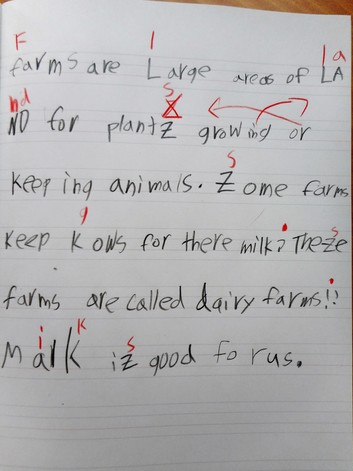 F l la
farms are Large areas of LA
nd s
ND for plantZ growing or
s
Keep ing animals. Zome farms
. s
Keep Kows for there milk? Theze
.
farms are called dairy farms!?
i k s
Malk iz good fo rus.